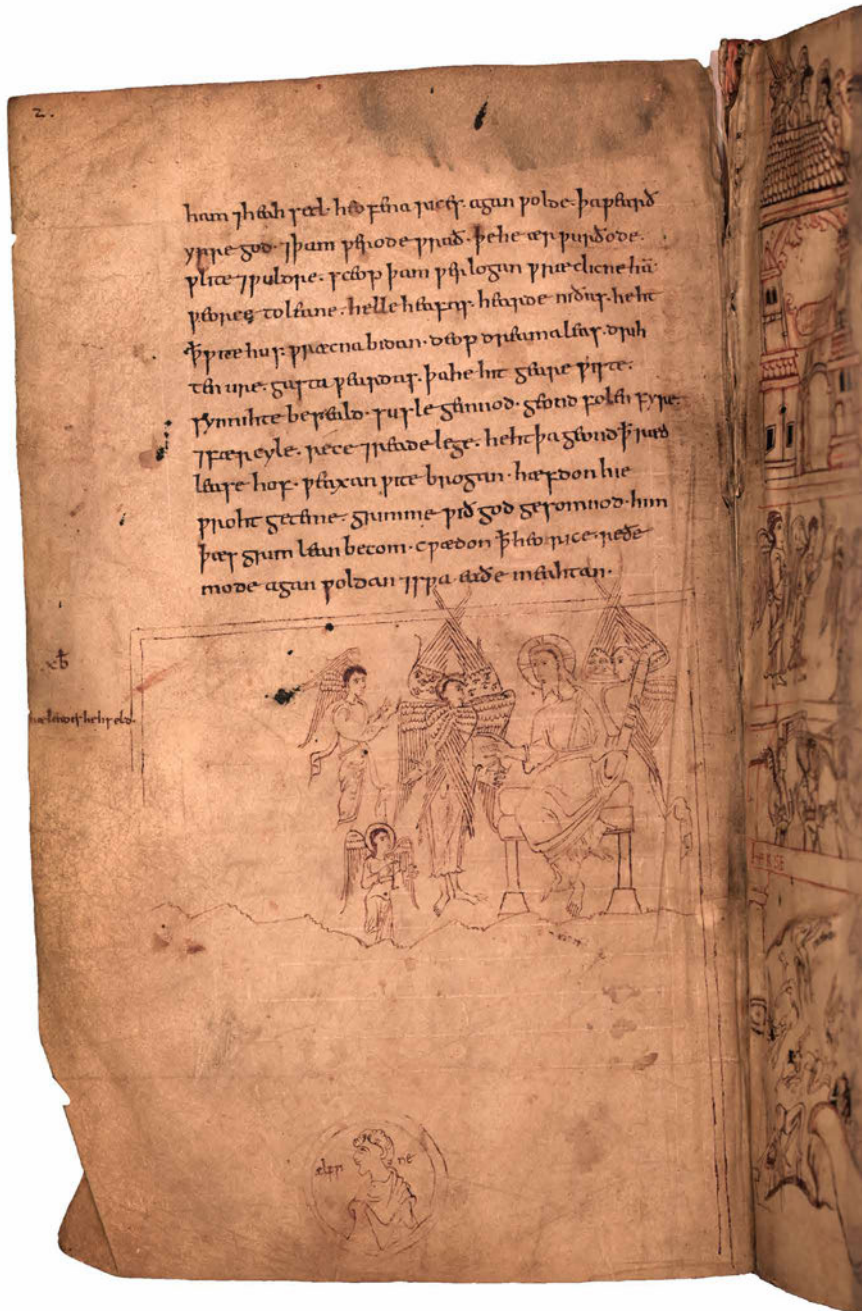 2.
ham ⁊heah setl. heofena rices. agan ƿolde. þa ƿearð
yrre god. ⁊þam ƿerode ƿrað. þe he ær ƿurðode.
ƿlite ⁊ƿuldre. sceop þam ƿerlogan ƿræclicne hā.
ƿeorces to leane. helle heafas. hearde niðas. heht
ꝥ ƿite hus. ƿræcna bidan. deop dreama leas. drih
ten ure. gasta ƿeardas. þa he hit geare ƿiste.
synnihte beseald. susle geinnod. geond folen fyre.
⁊fær cyle. rece ⁊reade lege. heht þa geond ꝥ ræd
lease hof. ƿeaxan ƿite brogan. hæfdon hie
ƿroht geteme. grimme ƿið god gesomnod. him
þæs grim lean becom. cƿædon ꝥ heo rice. reðe
mode agan ƿoldan ⁊sƿa eaðe meahtan.
hælendes hehseld.
ælfƿi ne